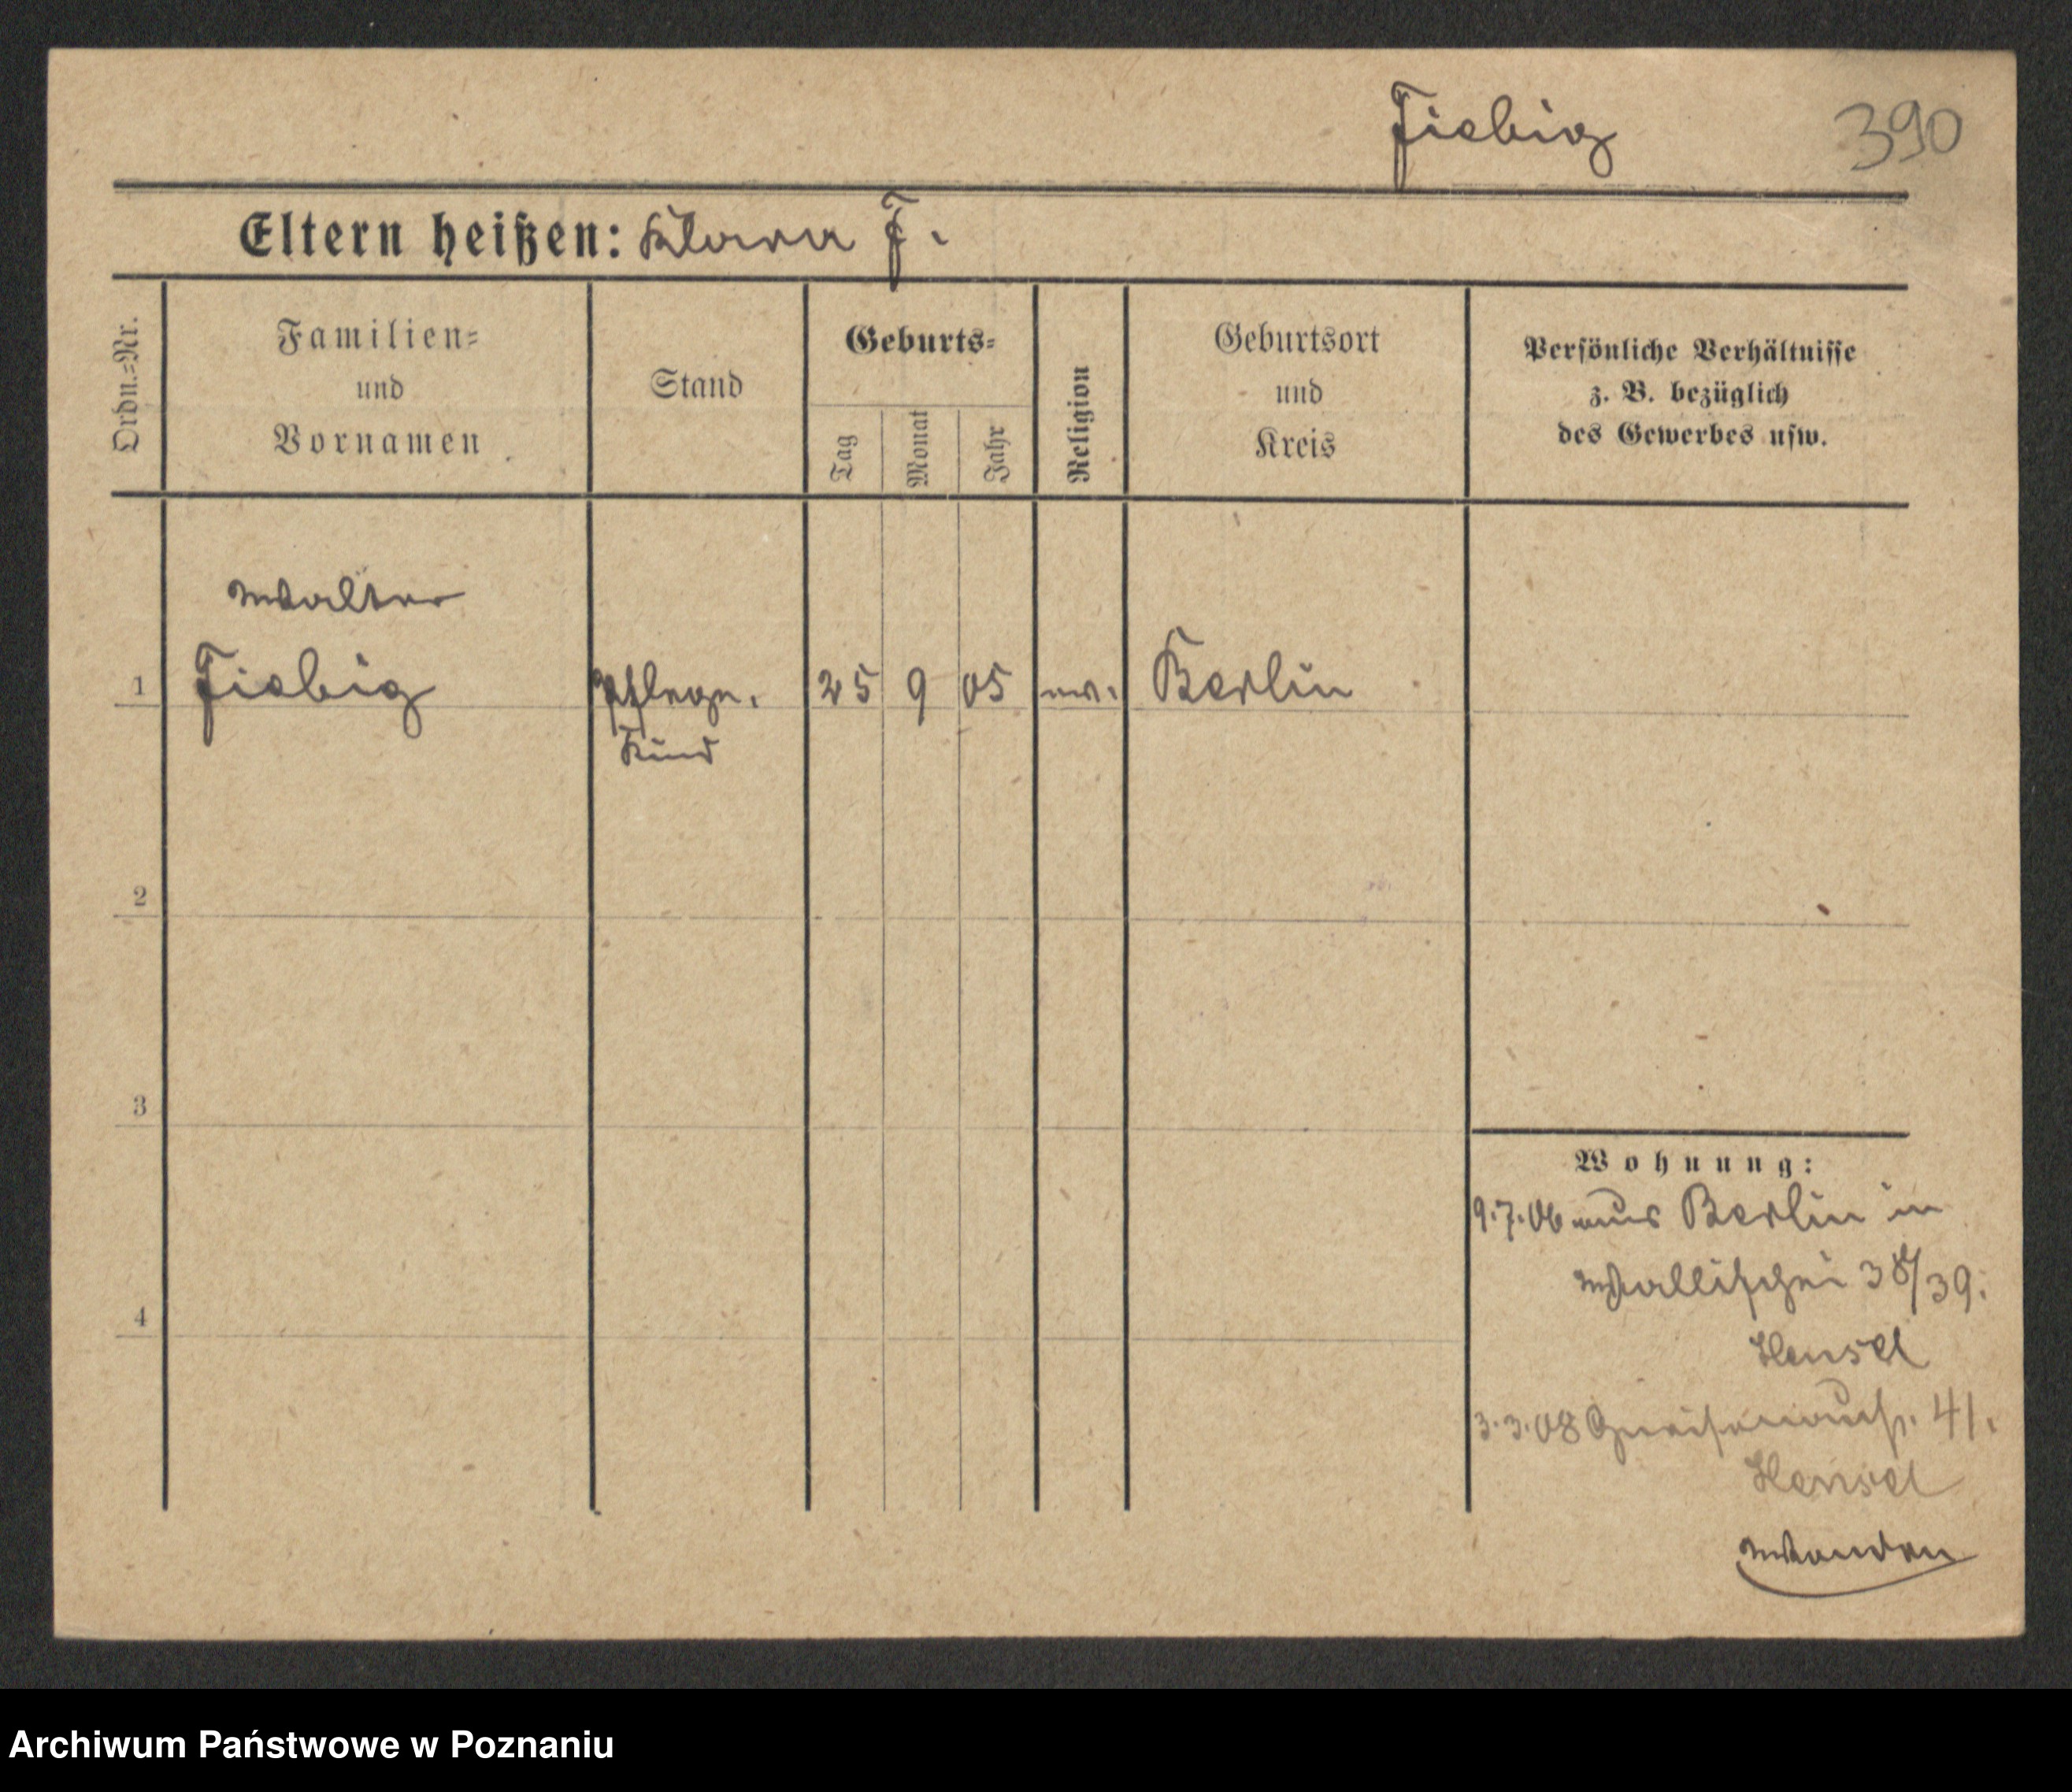 Fiebig 390
Eltern heißen: Klara F.
Ordn.-Nr.
Familien-
und
Vornamen
Stand
Geburts-
Tag
Monat
Jahr
Religion
Geburtsort
und
Kreis
Persönliche Verhältnisse
z. B. bezüglich
des Gewerbes usw.
Walter
1 Fiebig Pflege- 25 9 05 ev. Berlin
Kind
2
3
4
Wohnung:
9.7.06 aus Berlin in
Wallischei 38/39.
Hensel
3.3.08 Gneisenaustr. 41.
Hensel
Archiwum Państwowe w Poznaniu